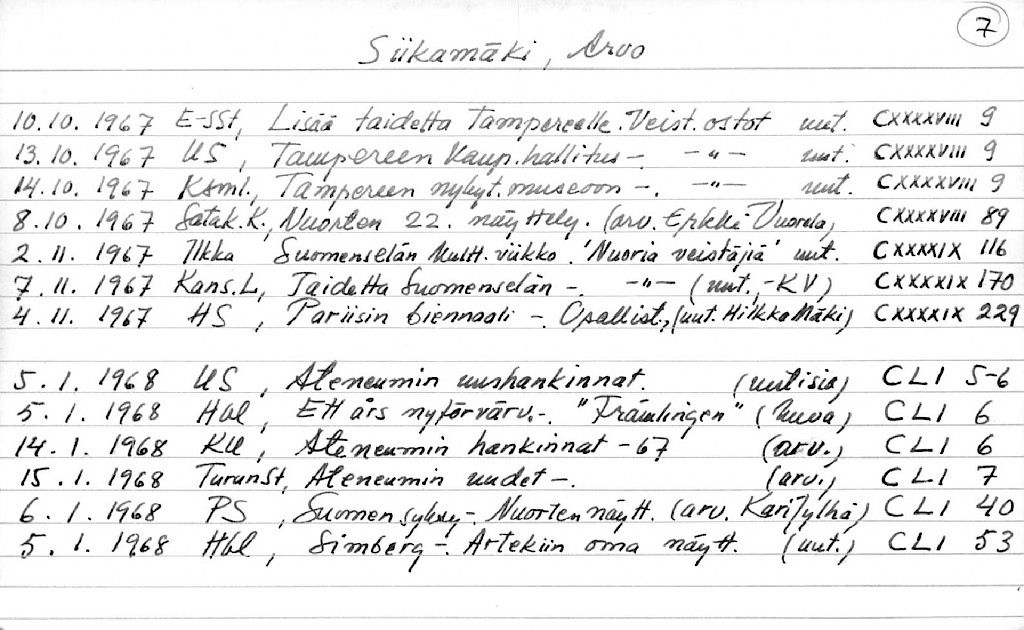 7
Siikamäki, Arvo
10.10. 1967 E-SSt, Lisää taidetta Tampereelle. Veist. ostot uut. CXXXXVIII 9
13.10. 1967 US, Tampereen Kaup.hallitus - -"- uut. CXXXXVIII 9
14.10. 1967 Ksml., Tampereen nykyt. museoon -. -"- uut. CXXXXVIII 9
8.10. 1967 Satak.K., Nuorten 22. näyttely. (arv. Erkki Vuorela) CXXXXVIII 89
2.11. 1967 Ilkka Suomenselän kultt. viikko. 'Nuoria veistäjiä' uut. CXXXXIX 116
7.11. 1967 Kans.L, Taidetta Suomenselän -. -"- (uut., -KV) CXXXXIX 170
4.11. 1967 HS, Pariisin biennaali -. Osallist., (uut. Hilkka Mäki) CXXXXIX 229
5.1. 1968 US, Ateneumin uushankinnat. (uutisia) CLI 5-6
5.1. 1968 Hbl, Ett års nyförvärv.-. "Främlingen" (kuva) CLI 6
14.1. 1968 KU, Ateneumin hankinnat -67 (arv.) CLI 6
15.1. 1968 TurunSt, Ateneumin uudet -. (arv.) CLI 7
6.1. 1968 PS, Suomen syksy -. Nuorten näytt. (arv. Kari Jylhä) CLI 40
5.1. 1968 Hbl, Simberg -. Artekiin oma näytt. (uut.) CLI 53